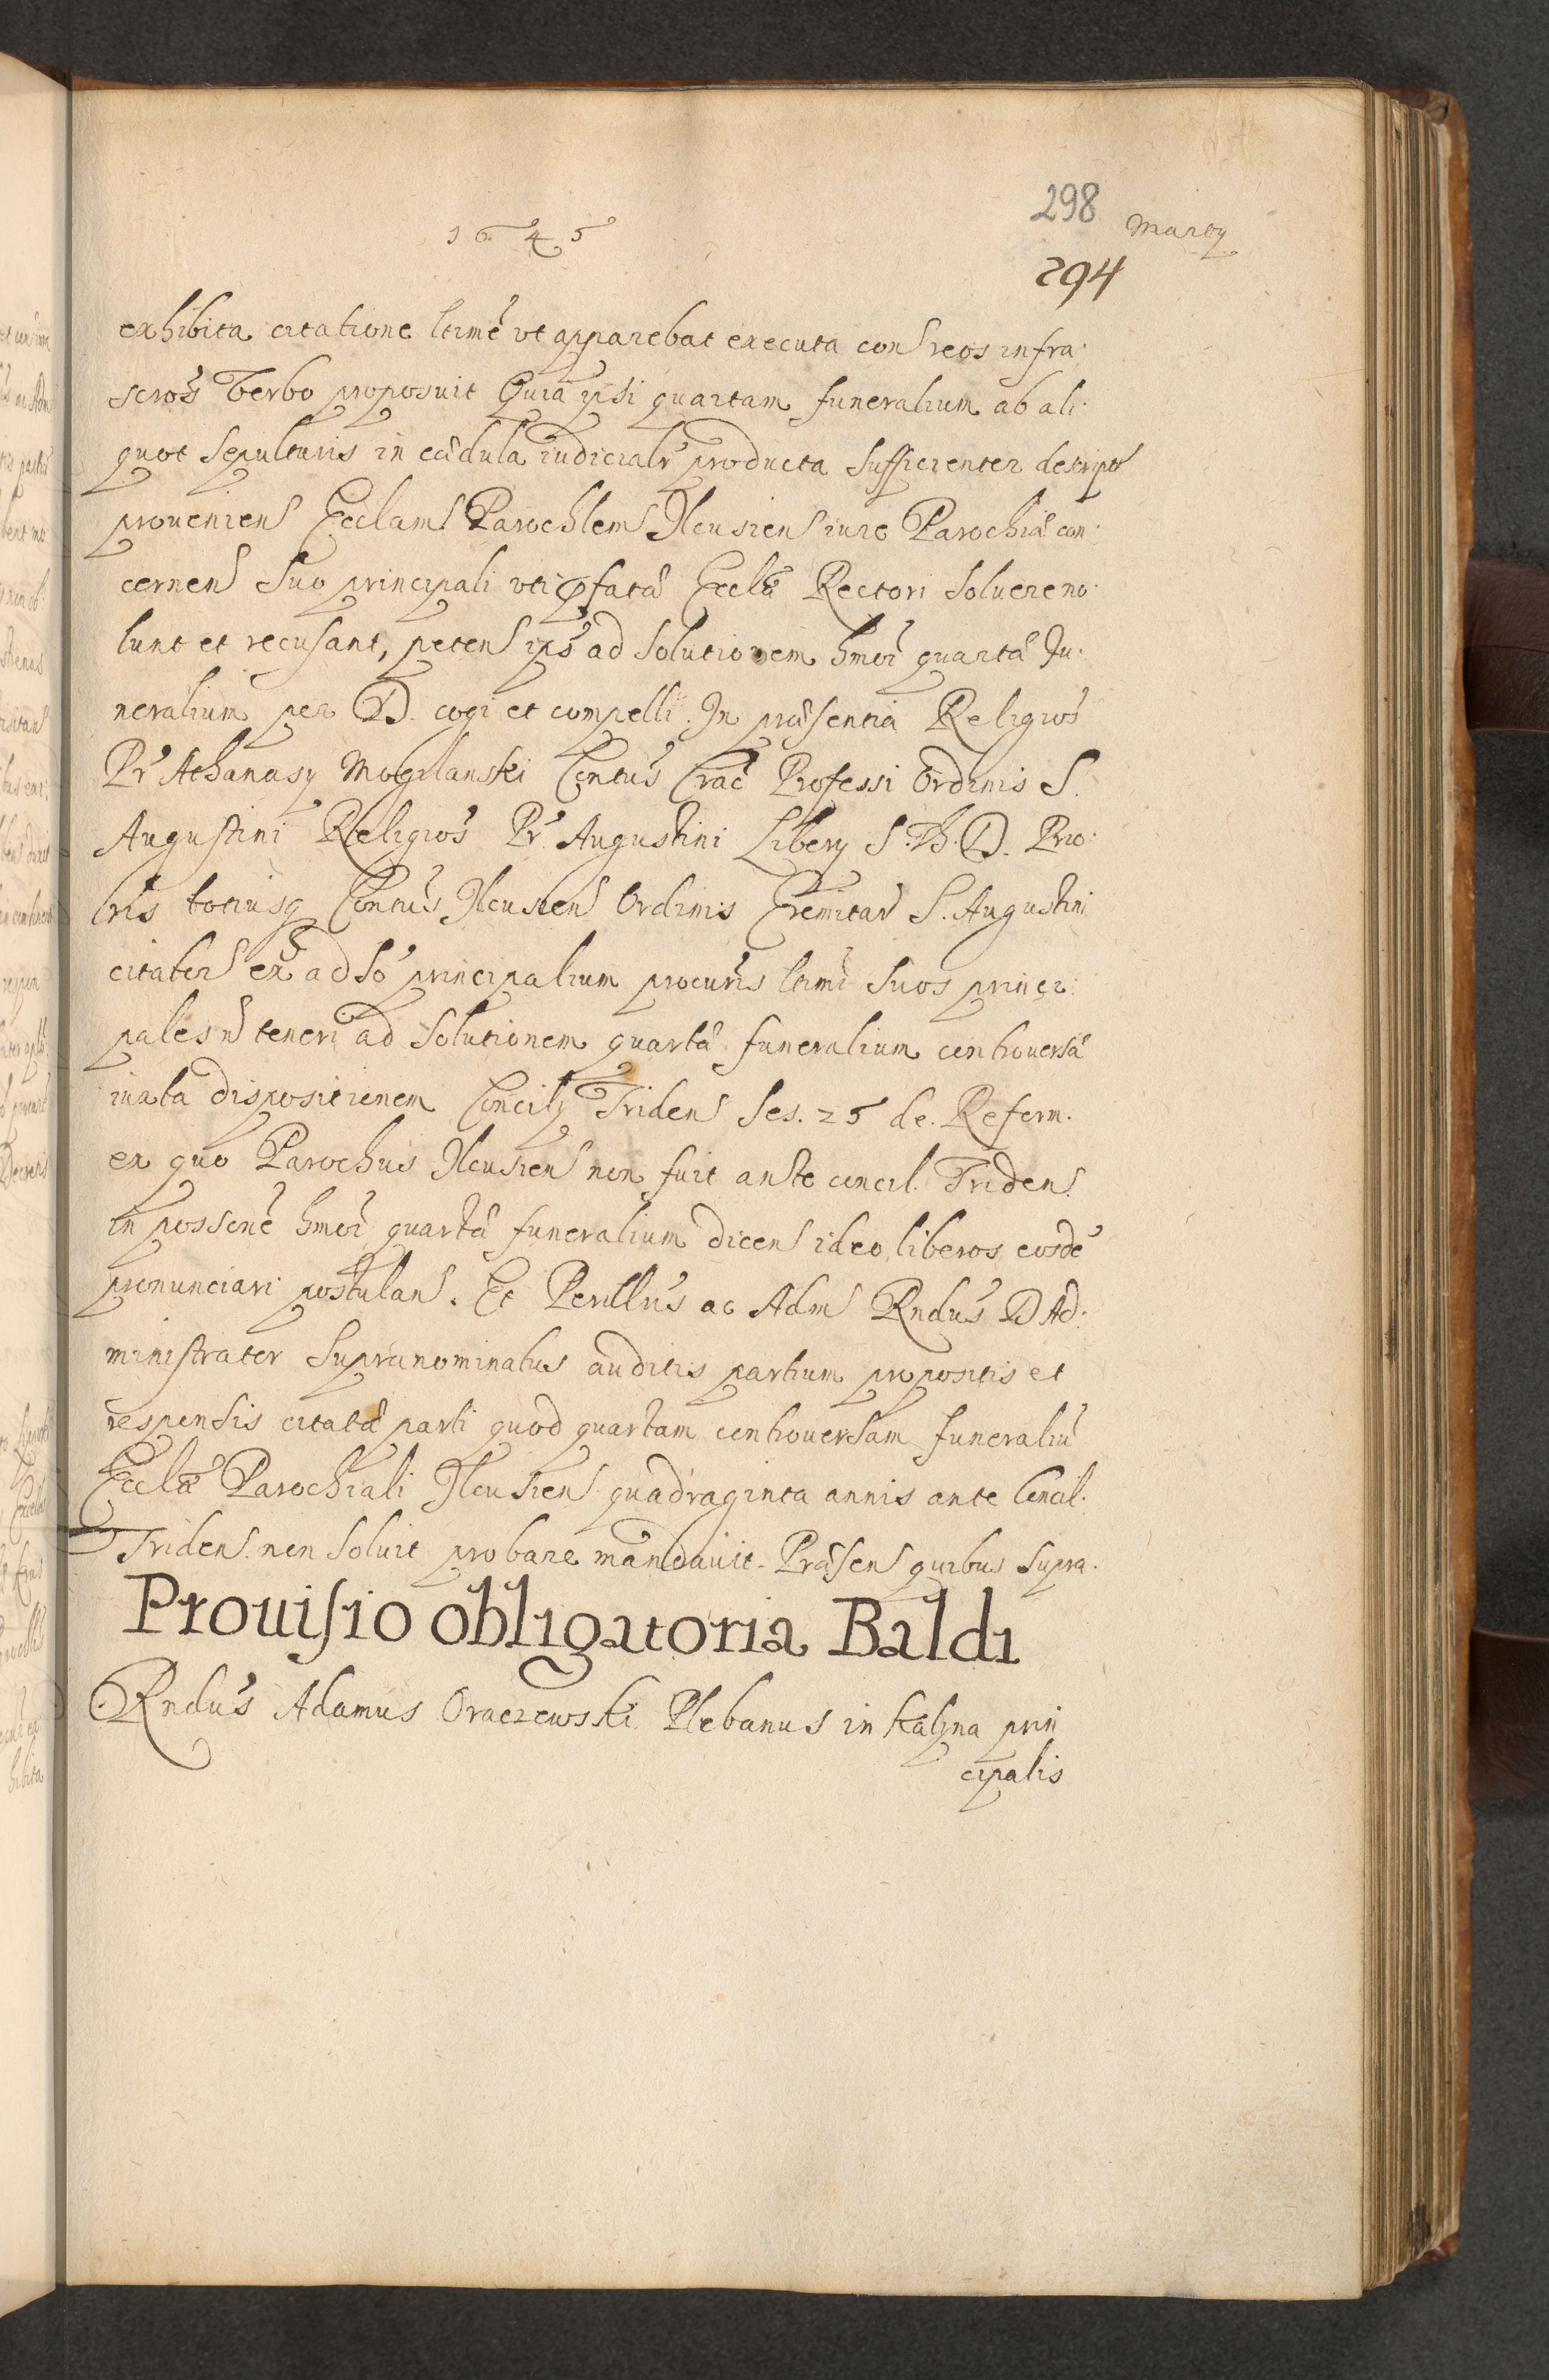 298
1645
Marty
294
exhibita citatione ltime ut apparebat executa con reos infra
scros Verbo proposuit Quia ipsi quartam funeralium ab ali
quot Sepulturis in cædula iudicialr producta sufficienter descript
proueniens Ecclam Parochlem Ilcusien iure Parochiæ con
cernen Suo principali uti pfatæ Ecclæ Rectori Soluere no
lunt et recusant, peten ips ad Solutionem hmoi quartæ Fu
neralium per D. cogi et compelli. In præsentia Religios
Pr Athanasy Mogilanski Contus Crac Professi Ordinis S.
Augustini Religios Pr Augustini Libery S. Th. D. Prio
ris totiusq Contus Ilcusien Ordinis Eremitar S. Augustini
citator ex ad so principalium procuris ltimi Suos princi
pales n teneri ad Solutionem quartæ funeralium controuersæ
iuxta dispositionem Concily Triden Ses. 25 de. Reform.
ex quo Parochus Ilcusien non fuit ante concil. Triden.
in possone hmoi quartæ funeralium dicen ideo liberos eosde
pronunciari postulan. Et Perillris ac Adm Rndus D Ad
ministrator Supranominatus auditis partium propositis et
responsis citatæ parti quod quartam controuersam funeraliu
Ecclæ Parochiali Ilcusien quadraginta annis ante Concil.
Triden. non Soluit probare mandauit. Præsen quibus supra.
Prouisio obligatoria Baldi
Rndus Adamus Oraczewski Plebanus in Kalina prin
cipalis